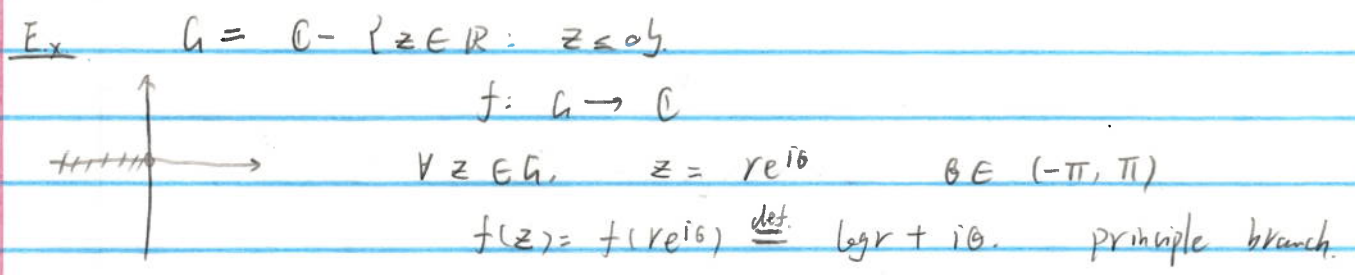 Ex G = ℂ - {z ∈ ℝ : z ≤ 0}.
f: G → ℂ
∀ z ∈ G, z = re^{iθ} θ ∈ (-π, π)
f(z) = f(re^{iθ}) \overset{def.}{=} log r + iθ. principle branch.